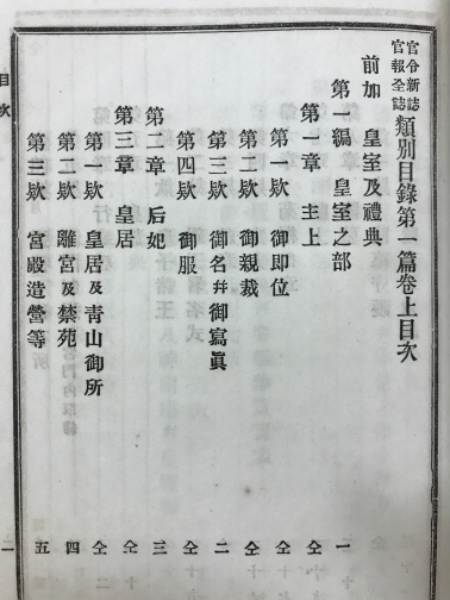 官令新誌
官報全誌 類別目錄第一篇卷上目次
前加 皇室及禮典
第一編 皇室之部 一
第一章 主上 仝
第一欵 御即位 仝
第二欵 御親裁 仝
第三欵 御名幷御寫眞 二
第四欵 御服 仝
第二章 后妃 三
第三章 皇居 仝
第一欵 皇居及靑山御所 仝
第二欵 離宮及禁苑 四
第三欵 宮殿造營等 五
目次
一